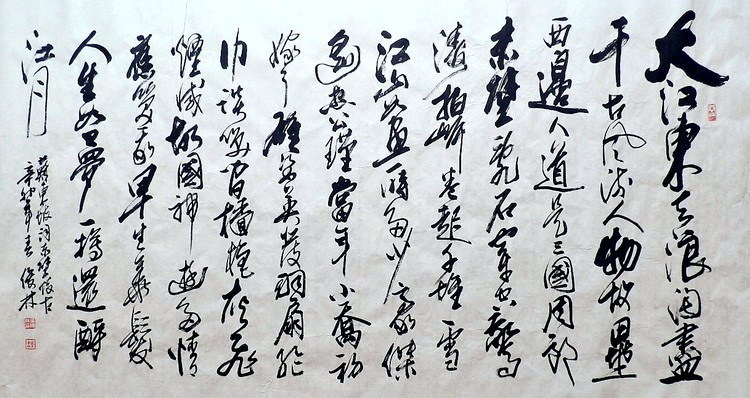 大江東去浪淘盡
千古風流人物故壘
西邊人道是三國周郎
赤壁亂石穿空驚
濤拍岸卷起千堆雪
江山如畫一時多少豪傑
遙想公瑾當年小喬初
嫁了雄姿英發羽扇綸
巾談笑間檣櫓灰飛
煙滅故國神遊多情
應笑我早生華髮
人生如夢一樽還酹
江月
蘇東坡詞赤壁懷古
辛卯年春俊林